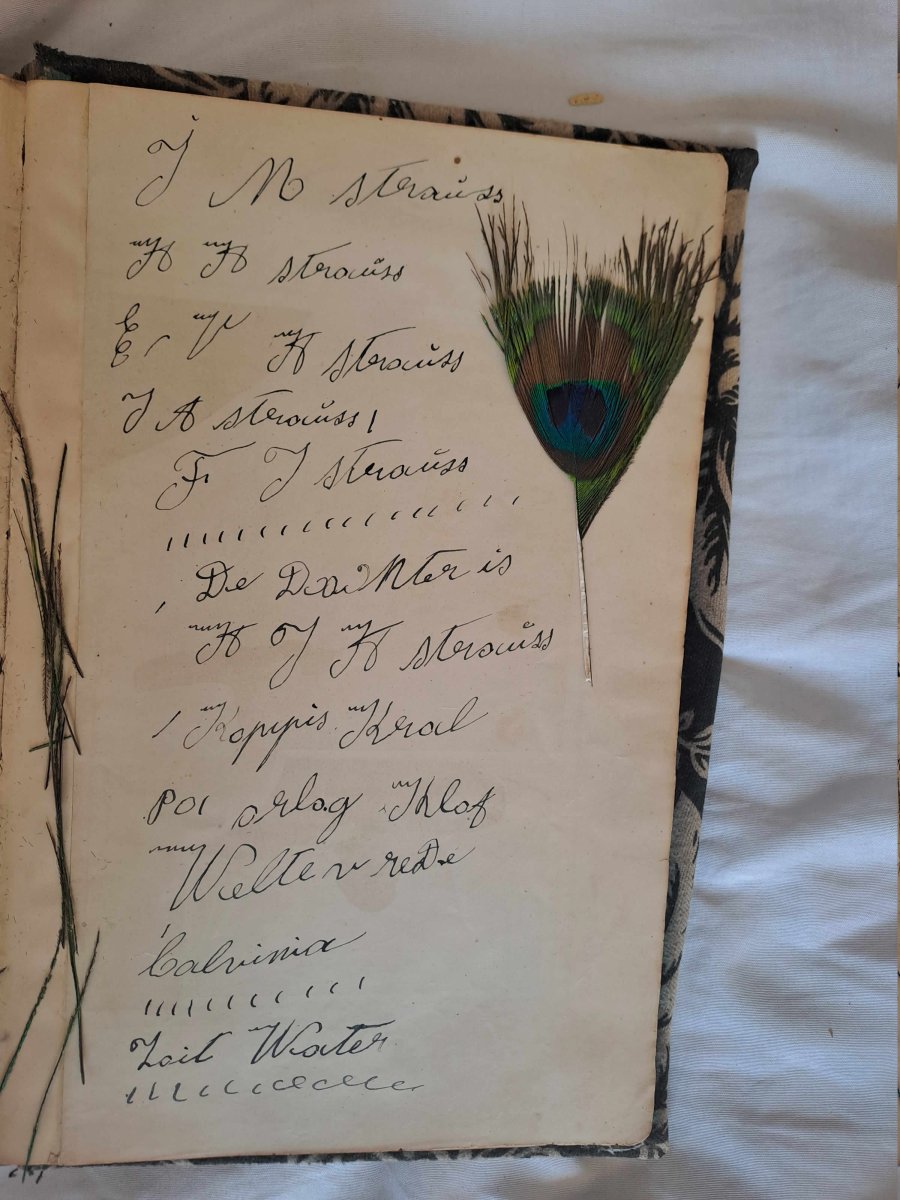 J M Strauss
H H Strauss
E, V H Strauss
J A Strauss,
F J Strauss
De Dochter is
H J H Strauss
Koppis Kral
orlog Klof
Weltevrede
Calvinia
Zoit Water